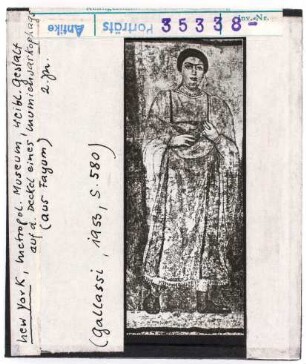 Inv.-Nr.
Antike
Porträts
35338-
New York, Metropol. Museum, weibl. Gestalt
auf d. Deckel eines Mumiensarkophags
(aus Fayum) 2. Jh.
(Gallassi, 1953, S. 580)